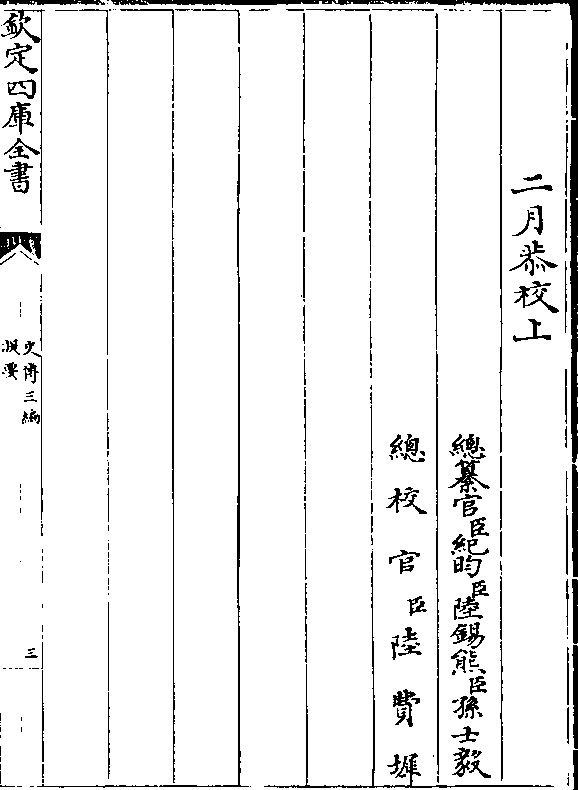 二月恭校上
總纂官臣紀昀臣陸錫熊臣孫士毅
總校官臣陸費墀
欽定四庫全書
史傳三編
提要
三